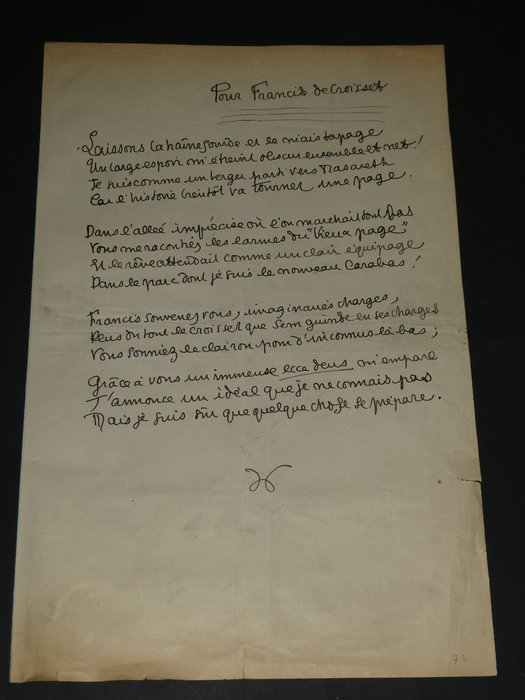 Pour Francis de Croisset
Laissons la haine sourde et le niais tapage
Un large espoir m'étreint obscur ensemble et net !
Je suis comme un berger parti vers Nasareth
Car l'histoire bientôt va tourner une page.
Dans l'allée imprécise où l'on marchait tout bas
Vous me racontiez les larmes du "Vieux page"
Et le rêve attendait comme un clair équipage
Dans le parc dont je suis le nouveau Carabas !
Francis souvenez vous, imaginaires charges,
Plus du tout le Croisset que Sem guinde en ses charges
Vous sonniez le clairon pour d'inconnus là bas ;
Grâce à vous un immense ecce deus m'empare
J'annonce un idéal que je ne connais pas
Mais je suis sûr que quelque chose se prépare.
72